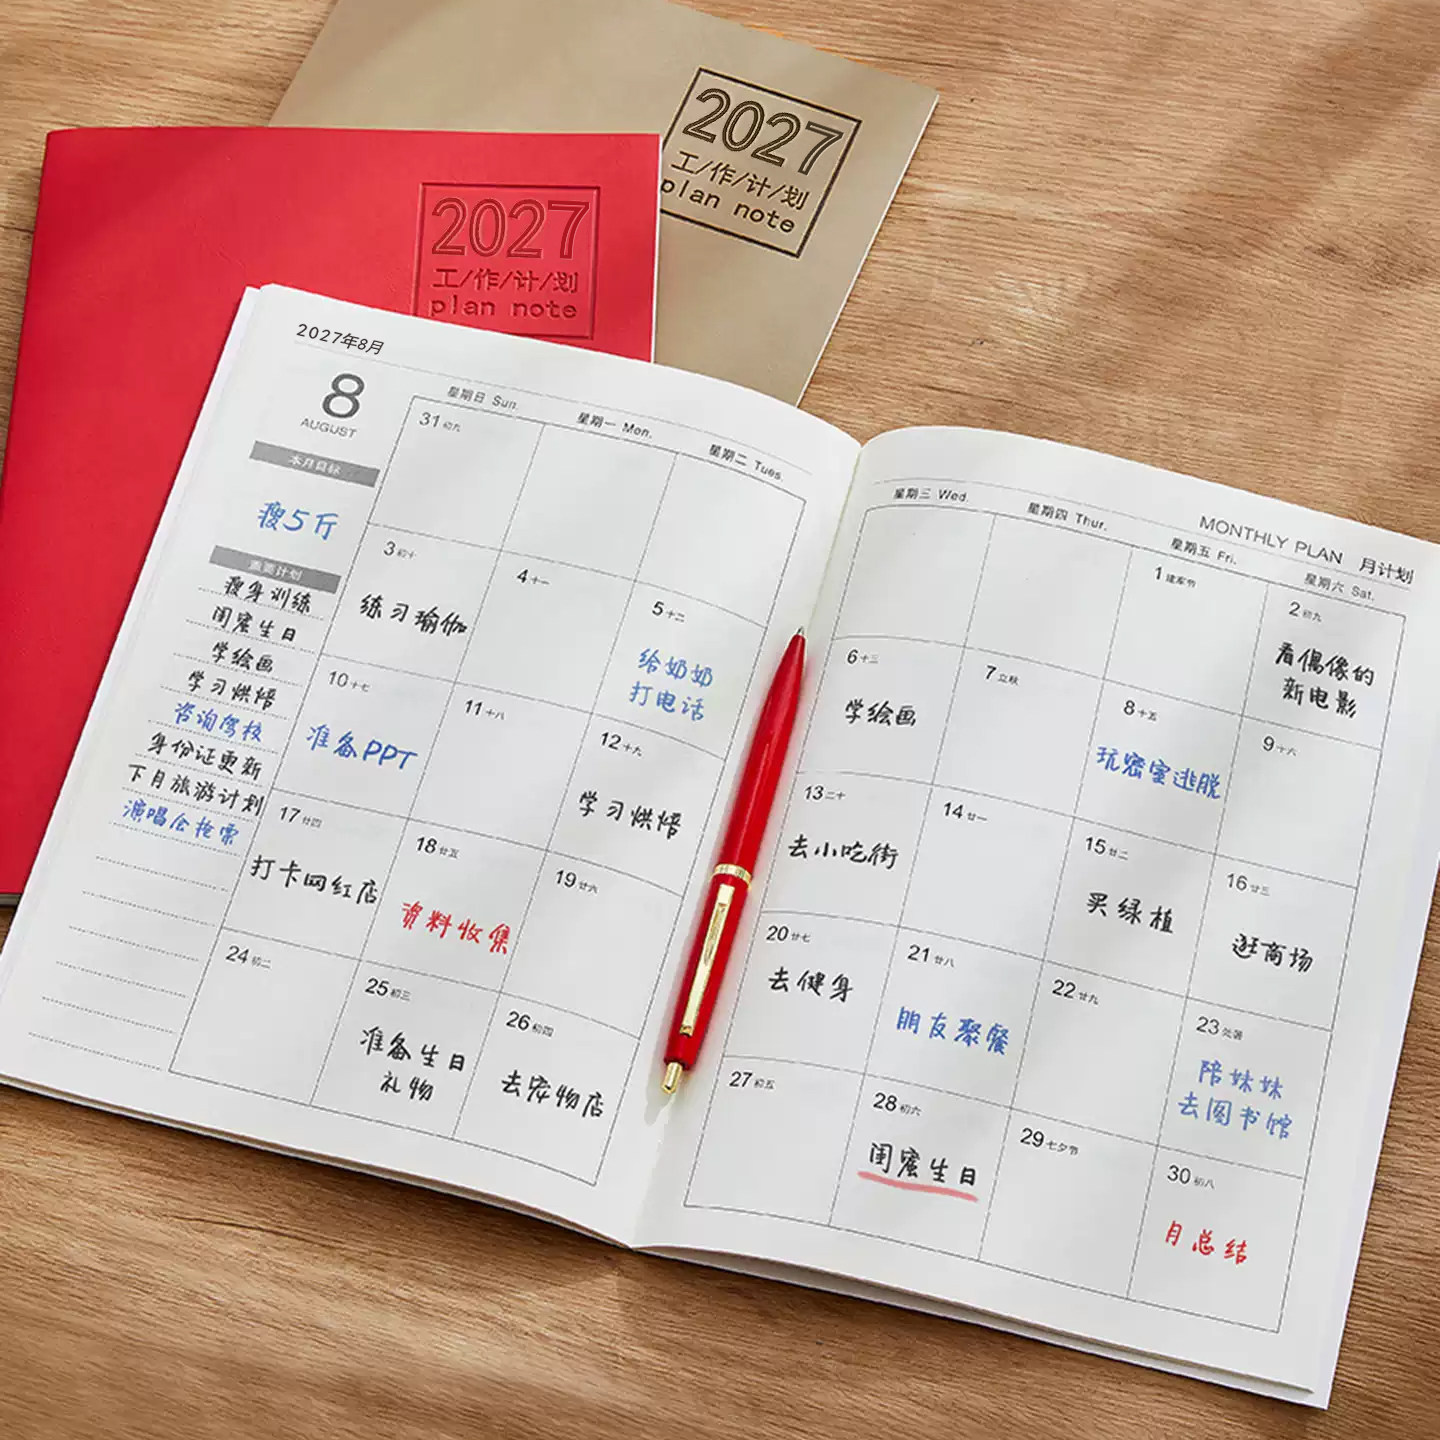 2027
工/作/计/划
plan note
2027
工/作/计/划
plan note
2027年8月
8
AUGUST
本月目标
瘦5斤
重要计划
瘦身训练
闺蜜生日
学绘画
学习烘焙
咨询驾校
身份证更新
下月旅游计划
演唱会抢票
MONTHLY PLAN 月计划
星期日 Sun.
星期一 Mon.
星期二 Tues.
星期三 Wed.
星期四 Thur.
星期五 Fri.
星期六 Sat.
31 初九
1 建军节
2 初九
看偶像的
新电影
3 初十
练习瑜伽
4 十一
5 十二
给奶奶
打电话
6 十三
学绘画
7 立秋
8 十五
玩密室逃脱
9 十六
10 十七
准备PPT
11 十八
12 十九
学习烘焙
13 二十
去小吃街
14 廿一
15 廿二
买绿植
16 廿三
逛商场
17 廿四
打卡网红店
18 廿五
资料收集
19 廿六
20 廿七
去健身
21 廿八
朋友聚餐
22 廿九
23 处暑
陪妹妹
去图书馆
24 初二
25 初三
准备生日
礼物
26 初四
去宠物店
27 初五
28 初六
闺蜜生日
29 七夕节
30 初八
月总结